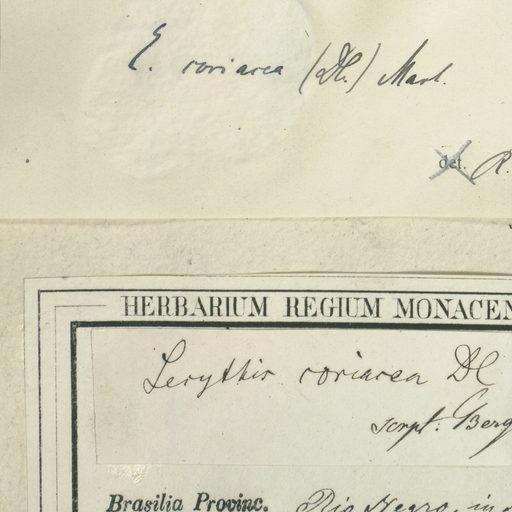 E. coriacea (DC.) Mart.
det. R.
HERBARIUM REGIUM MONACEN
Lecythis coriacea DC
script. Berg
Brasilia Provinc. Rio Negro, in